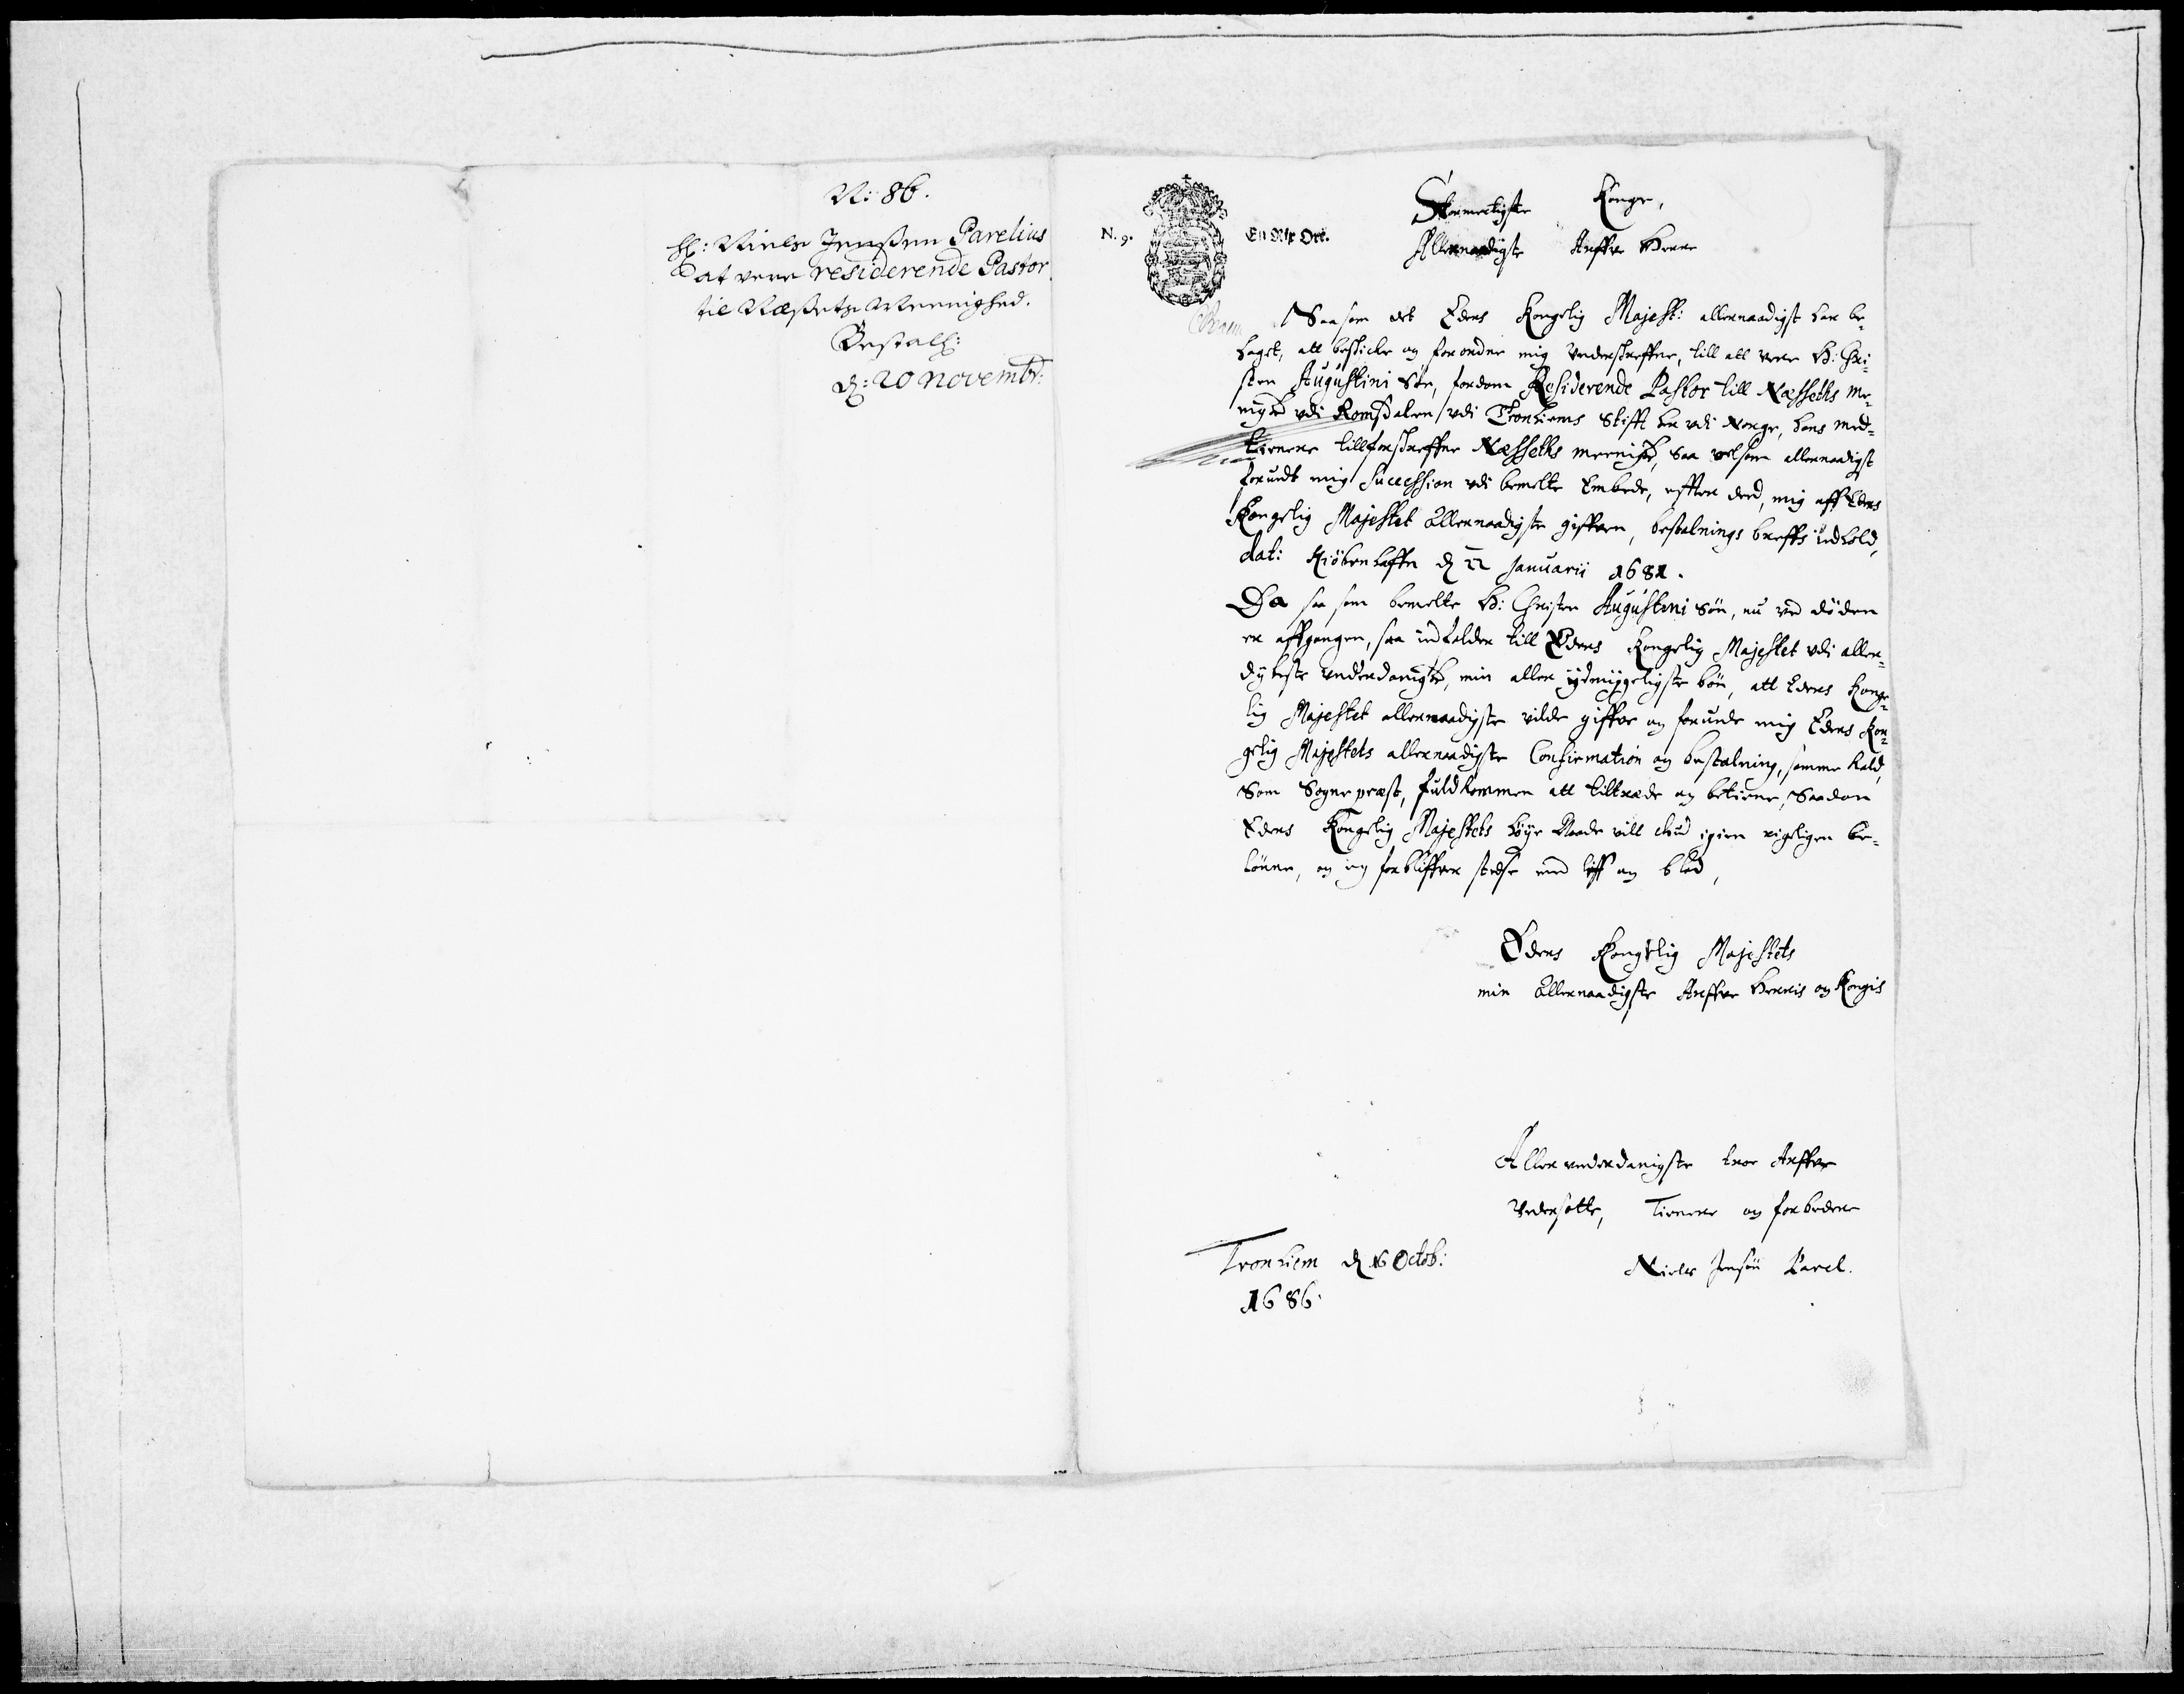 N: 86.
H: Niels Jenssen Parelius
at vere residerende Pastor
til Næssets Meenighed.
Bestall:
d: 20 Novembr:
N. 9.
En Rix Ort.
Stormectigste Konge,
Allernaadigste Arffve Herre
Saasom det Eders Kongelig Majest: allernaadigst har be-
haget, att beskicke og forordne mig underskreffne, till att vere H: Chri-
sten Augustini Søn, fordom Residerende Pastor till Næsseths me-
nighed udi Romsdalen udi Tronhiems Stifft her udi Norge, hans med-
tienere till forskreffne Næsseths meenighed, saa velsom allernaadigst
forundt mig Succession udi bemelte Embede, effter ded, mig aff Eders
Kongelig Majestet Allernaadigste giffven, bestalnings breffs indhold,
dat: Kiøbenhaffn d 22 Januarii 1681.
Da saa som bemelte H: Christen Augustini Søn, nu ved døden
er affgangen, saa indfalder till Eders Kongelig Majestet udi aller-
dybeste underdanighed, min aller ydmygeligste bøn, att Eders Konge-
lig Majestet allernaadigste vilde giffve og forunde mig Eders Kon-
gelig Majestets allernaadigste Confirmation og bestalning, samme kald,
som Sogne præst, fuldkommen att tiltræde og betiene, Saadan
Eders Kongelig Majestets høye Naade vill Gud igien rigeligen be-
lønne, og jeg forbliffver stedse med liff og blod,
Eders Kongelig Majestets
min Allernaadigste Arffve Herris og Kongis
Allerunderdanigste troe Arffve
Undersotte, Tienere og forbedere
Tronhiem d 16 Octob:
1686.
Niels Jensøn Parel.